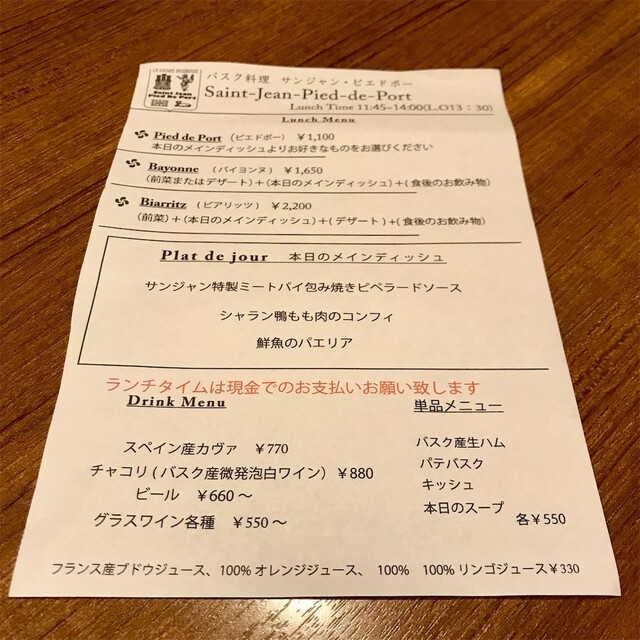 バスク料理 サンジャン・ピエドポー
Saint-Jean-Pied-de-Port
Saint Jean
Pied de Port
Lunch Time 11:45-14:00(L.O13：30)
Lunch Menu
Pied de Port （ピエドポー） ￥1,100
本日のメインディッシュよりお好きなものをお選びください
Bayonne （バイヨンヌ） ￥1,650
（前菜またはデザート）+（本日のメインディッシュ）+（食後のお飲み物）
Biarritz （ビアリッツ） ￥2,200
（前菜）+（本日のメインディッシュ）+（デザート）+（食後のお飲み物）
Plat de jour 本日のメインディッシュ
サンジャン特製ミートパイ包み焼きピペラードソース
シャラン鴨もも肉のコンフィ
鮮魚のパエリア
ランチタイムは現金でのお支払いお願い致します
Drink Menu
スペイン産カヴァ ￥770
チャコリ（バスク産微発泡白ワイン）￥880
ビール ￥660～
グラスワイン各種 ￥550～
単品メニュー
バスク産生ハム
パテバスク
キッシュ
本日のスープ
各￥550
フランス産ブドウジュース、100% オレンジジュース、 100% 100% リンゴジュース￥330